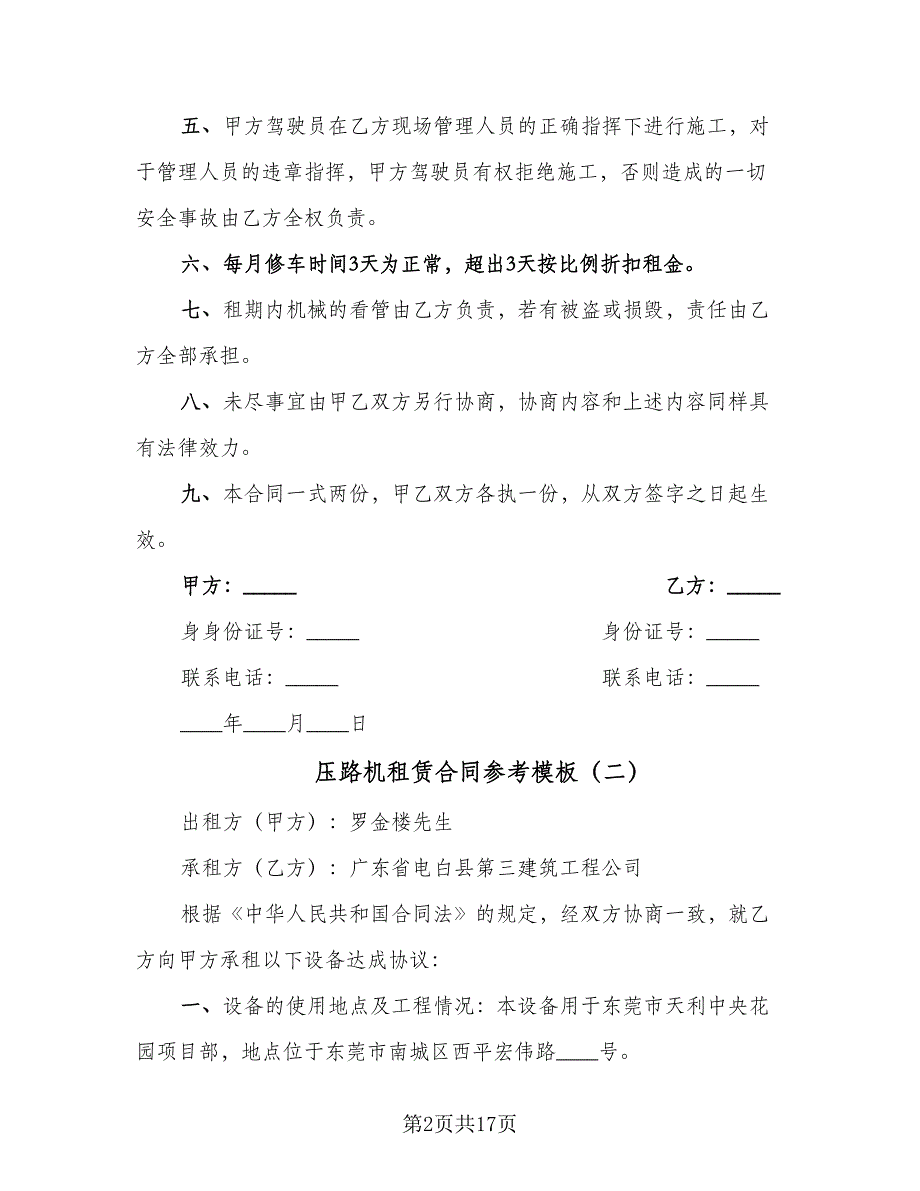 五、甲方驾驶员在乙方现场管理人员的正确指挥下进行施工，对
于管理人员的违章指挥，甲方驾驶员有权拒绝施工，否则造成的一切
安全事故由乙方全权负责。
六、每月修车时间3天为正常，超出3天按比例折扣租金。
七、租期内机械的看管由乙方负责，若有被盗或损毁，责任由乙
方全部承担。
八、未尽事宜由甲乙双方另行协商，协商内容和上述内容同样具
有法律效力。
九、本合同一式两份，甲乙双方各执一份，从双方签字之日起生
效。
甲方：_____ 乙方：_____
身身份证号：_____ 身份证号：_____
联系电话：_____ 联系电话：_____
____年____月____日
压路机租赁合同参考模板（二）
出租方（甲方）：罗金楼先生
承租方（乙方）：广东省电白县第三建筑工程公司
根据《中华人民共和国合同法》的规定，经双方协商一致，就乙
方向甲方承租以下设备达成协议：
一、设备的使用地点及工程情况：本设备用于东莞市天利中央花
园项目部，地点位于东莞市南城区西平宏伟路____号。
第2页共17页